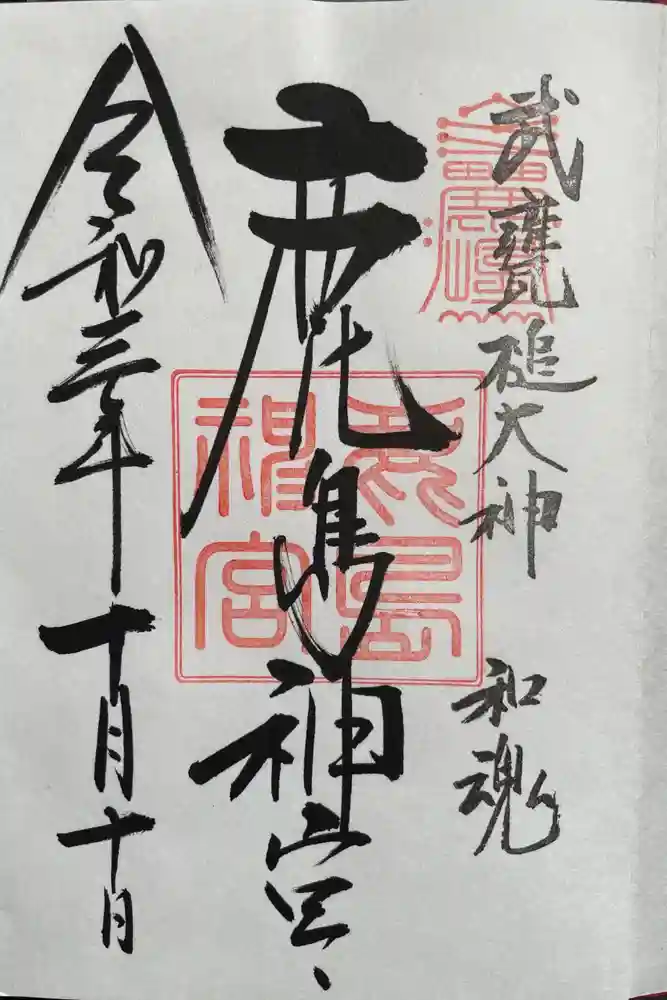 武甕槌大神 和魂
鹿島神宮
鹿島
神宮
令和三年十月十日